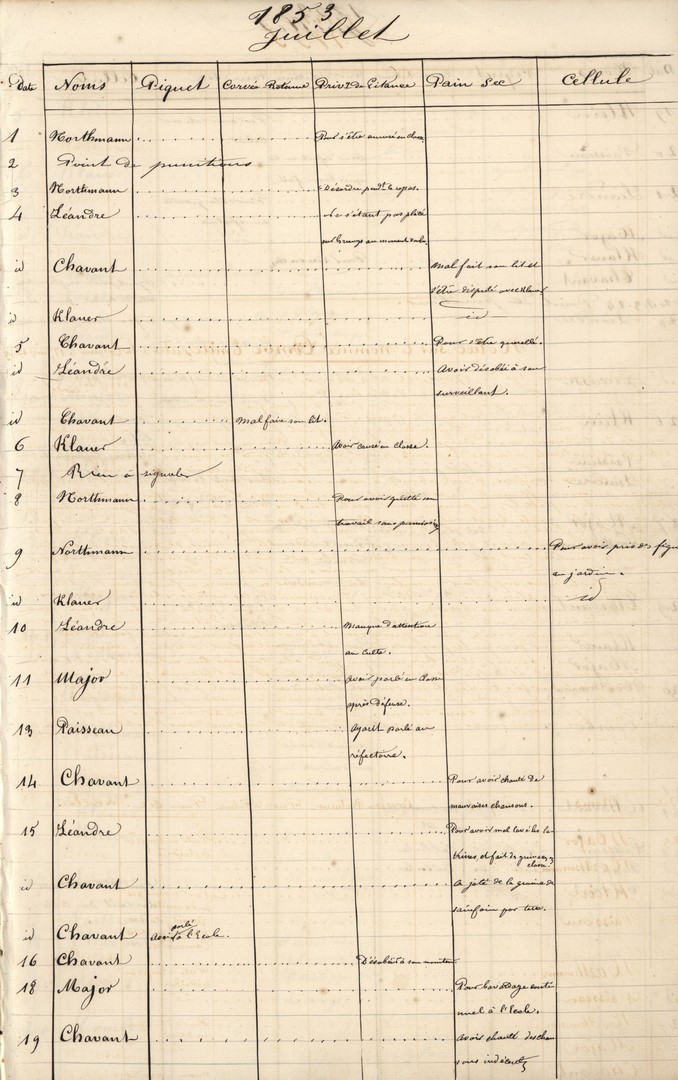 1853
Juillet
Date Noms Piquet Corvée Retenue Privon de Pitance Pain Sec Cellule
1 Northmann Pour s'être amusé en classe.
2 Point de punitions
3 Northmann Désordre pendt le repas.
4 Léandre Ne s'étant pas placé
sur les rangs au moment
id Chavant Mal fait son lit et
s'être disputé avec Klauer
id Klauer id
5 Chavant Pour s'être querellé.
id Léandre Avoir désobéi à son
surveillant.
id Chavant Mal faire son lit.
6 Klauer Avoir causé en classe.
7 Rien à signaler
8 Northmann Pour avoir quitté son
travail sans permission
9 Northmann Pour avoir pris des figues
au jardin.
id Klauer id
10 Léandre Manque d'attention
au culte.
11 Major Avoir parlé en classe
après défense.
13 Paisseau Ayant parlé au
réfectoire.
14 Chavant Pour avoir chanté de
mauvaises chansons.
15 Léandre Pour avoir mal lavé les la-
trines, et fait des grimaces en
classe.
id Chavant A jeté de la graine de
sainfoin par terre.
id Chavant Avoir parlé à l'Ecole.
16 Chavant Désobéi à son moniteur
18 Major Pour bavardage conti-
nuel à l'Ecole.
19 Chavant Avoir chanté des chan
sons indécentes